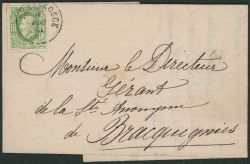 Monsieur le Directeur
Gérant
de la Sté Anonyme
de Bracquegnies